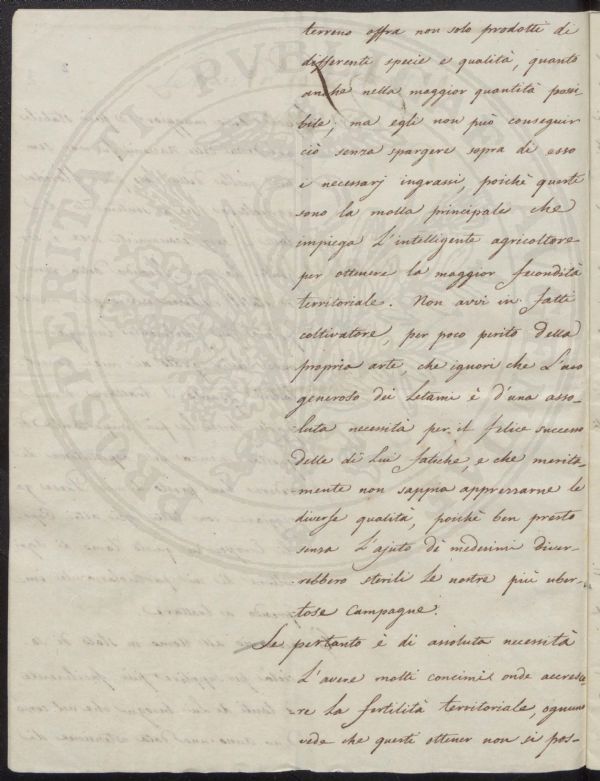 terreno offra non solo prodotti di
differenti specie e qualità, quanto
anche nella maggior quantità possi-
bile, ma egli non può conseguir
ciò senza spargere sopra di esso
i necessarj ingrassi, poichè questi
sono la molla principale che
impiega l'intelligente agricoltore
per ottenere la maggior fecondità
territoriale. Non avvi in fatti
coltivatore, per poco perito della
propria arte, che ignori che l'uso
generoso dei letami è d'una asso-
luta necessità per il felice successo
delle di lui fatiche, e che merita-
mente non sappia apprezzarne le
diverse qualità, poichè ben presto
senza l'ajuto dè medesimi diver-
rebbero sterili le nostre più uber-
tose campagne.
Se pertanto è di assoluta necessità
l'avere molti concimi onde accresce-
re la fertilità territoriale, ognuno
vede che questi ottener non si pos-
PROSPERITATI PVBLICAE